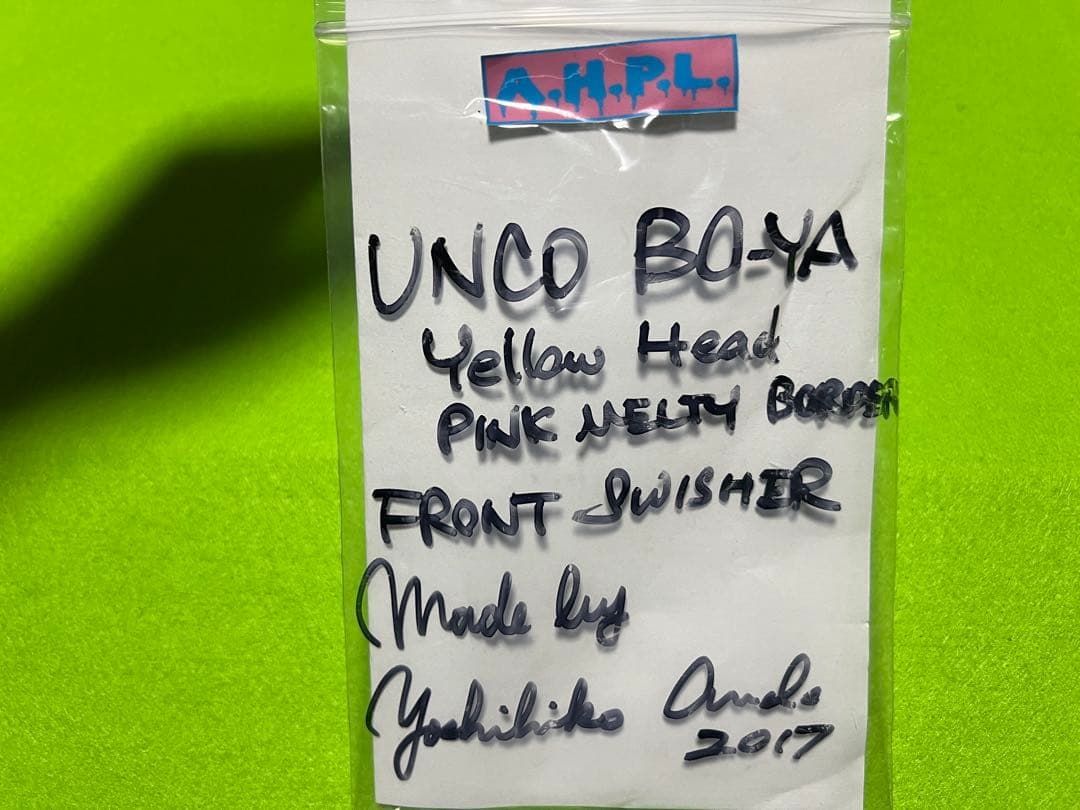 A.H.P.L.
UNCO BO-YA
Yellow Head
PINK MELTY BORDER
FRONT SWISHER
Made by
Yoshihiko Ando
2017